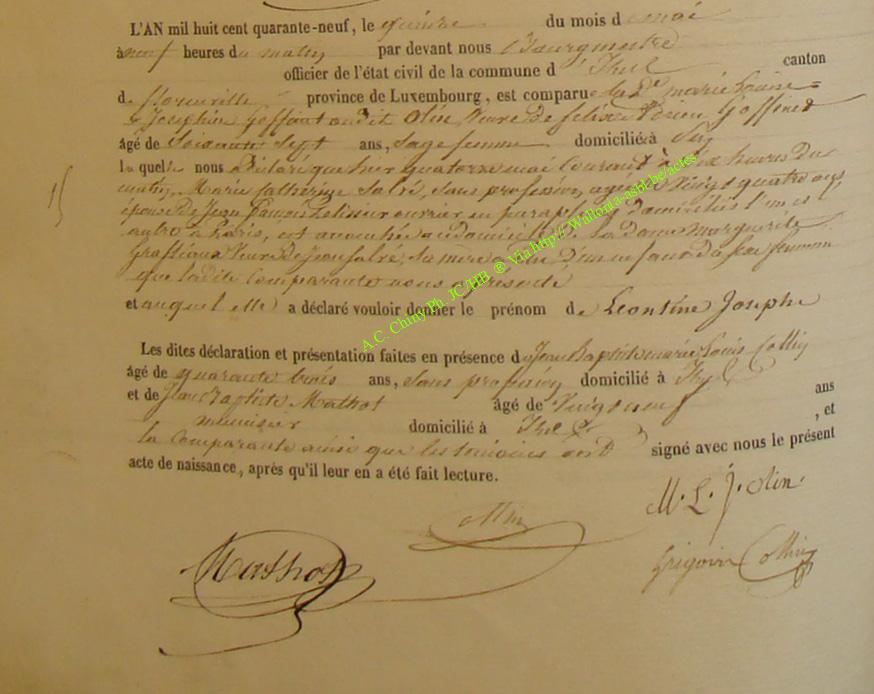 L'AN mil huit cent quarante-neuf, le quinze du mois de mai
à neuf heures du matin par devant nous Bourgmestre
officier de l'état civil de la commune d'Izel canton
de florenville province de Luxembourg, est comparue la De marie Louise
Josephine Goffaut ou dit Olin, veuve de felix Goffinet
âgé de Soixante Sept ans, Sage femme domicilié à
laquelle nous a déclaré que hier quatorze mai Courant à six heures du
matin, Marie Catherine Salré, Sans profession, agée de vingt quatre ans,
épouse de Jean francois ouvrier en domiciliés l'un et
autre à Paris, est accouchée au domicile de la dame Marguerite
veuve de Jean Salré, sa mère d'un enfant du sexe féminin
que ladite Comparante nous a présenté
et auquel elle a déclaré vouloir donner le prénom de Leontine Josephe
Les dites déclaration et présentation faites en présence de Jean Baptiste marie Louis Collin
âgé de quarante trois ans, Sans profession domicilié à Izel
et de Jean Baptiste Mathot âgé de vingt neuf ans
menuisier domicilié à Izel , et
la Comparante ainsi que les témoins ont signé avec nous le présent
acte de naissance, après qu'il leur en a été fait lecture.
M. L. J. Olin
Collin
Mathot
Grigoire Collin
A.C. Chiny Ph. JC HB ® Via http://Wallonia-asbl-be/actes